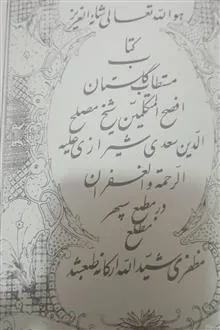 هو الله تعالی شانه العزیز
کتاب
مستطاب گلستان
افصح المتکلمین شیخ مصلح
الدین سعدی شیرازی علیه
الرحمة و الغفران
در مطبع سپهر
مطلع
مظفری شید الله ارکانه طبع شد